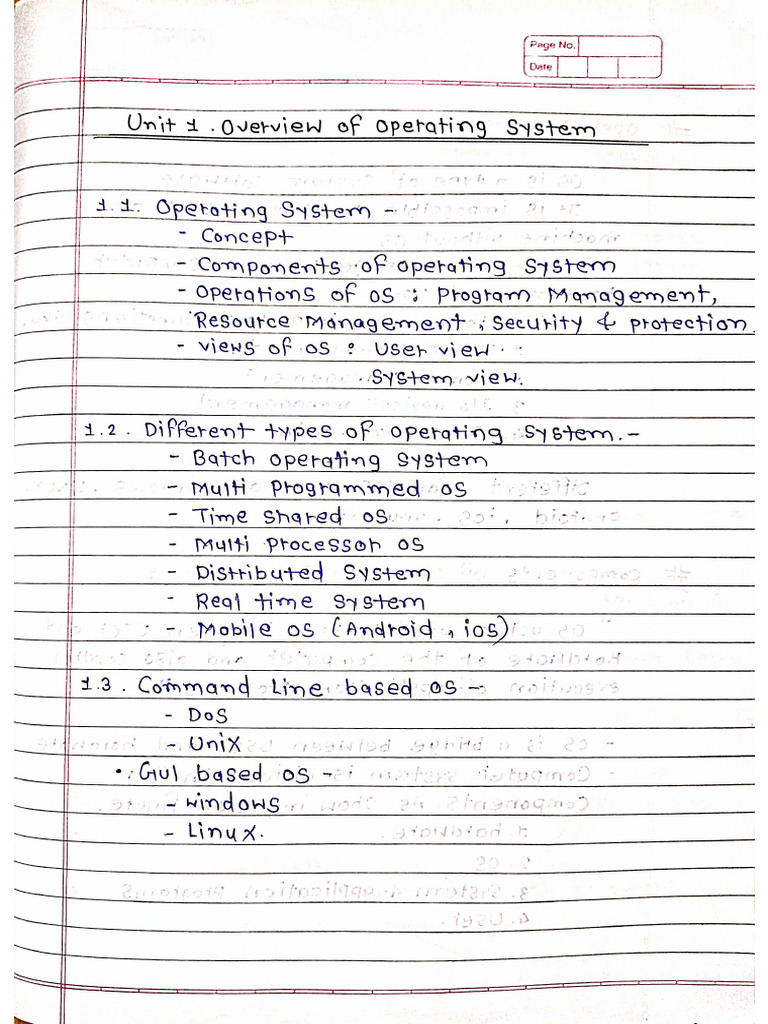 Page No.
Date
Unit 1. Overview of Operating System
1.1. Operating System -
- Concept
- Components of operating System
- Operations of OS : Program Management,
Resource Management, Security & protection
- views of OS : User view.
System view.
1.2. Different types of operating System. -
- Batch operating System
- Multi Programmed OS
- Time shared OS
- Multi Processor OS
- Distributed System
- Real time System
- Mobile OS (Android, ios)
1.3. Command Line based OS -
- DOS
- Unix
• GUI based OS -
- windows
- Linux.